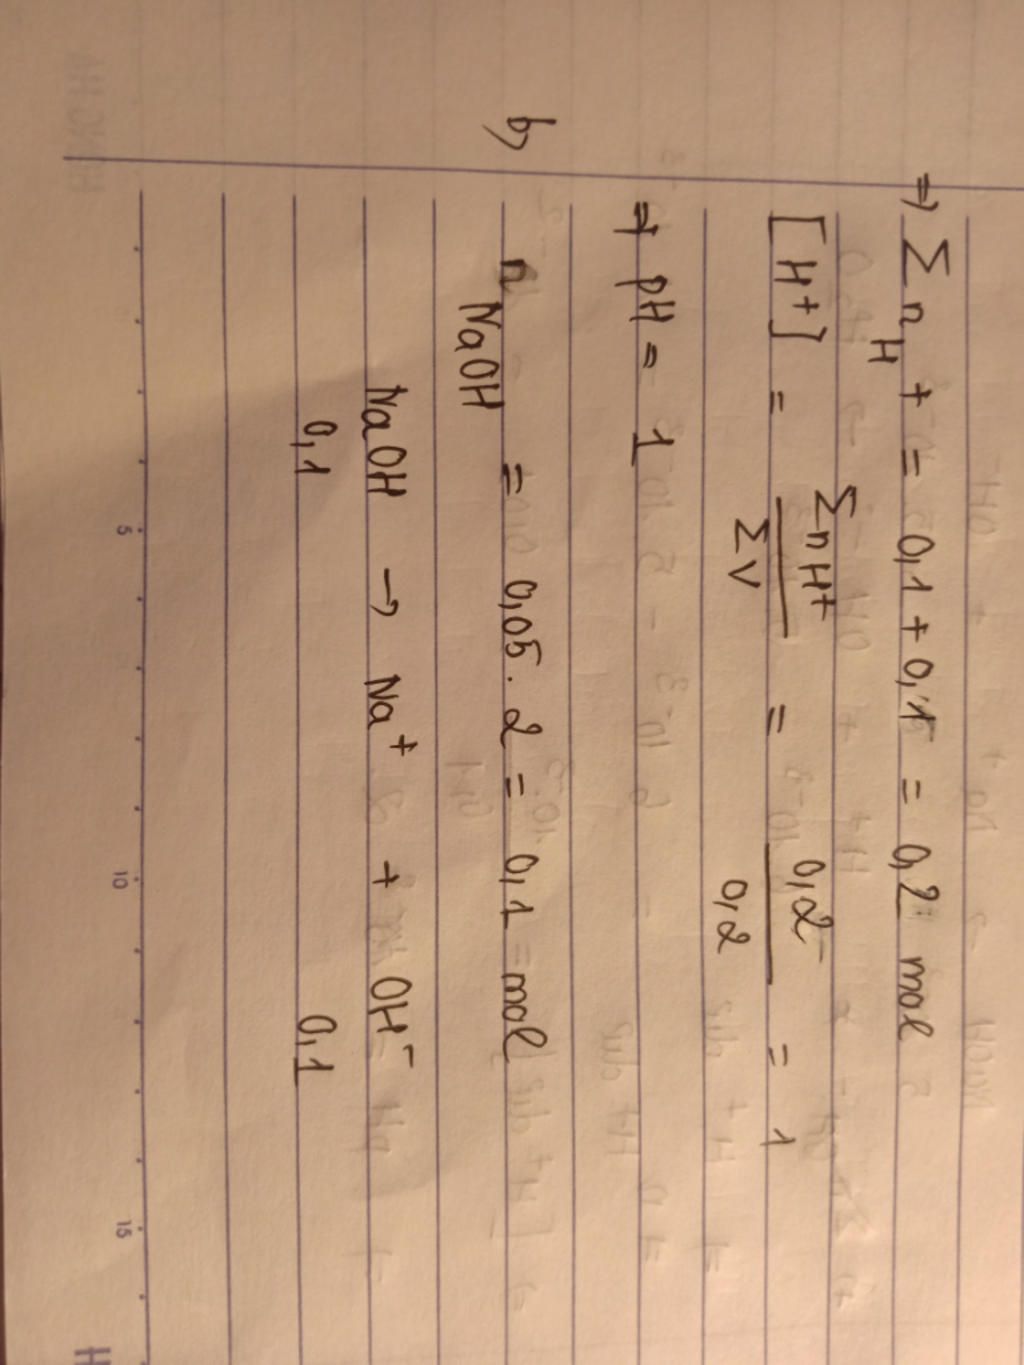 ⇒ Σ n H + = 0,1 + 0,1 = 0,2 mol
[H+] = Σ n H+ / Σ V = 0,2 / 0,2 = 1
⇒ pH = 1
b) n NaOH = 0,05 . 2 = 0,1 mol
NaOH → Na+ + OH-
0,1 0,1
5 10 15